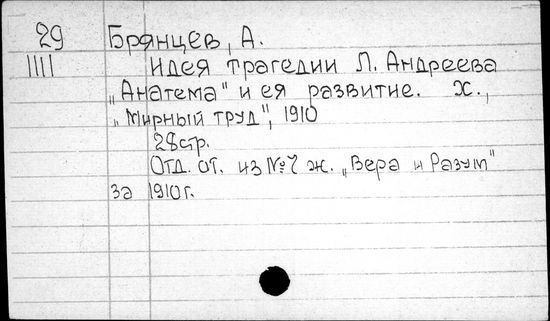 29 Брянцев, А.
1111 Идея трагедии Л. Андреева
„Анатема" и ея развитие. Х.,
„Мирный труд", 1910
28 стр.
Отд. от. из №7 ж. „Вера и Разум"
за 1910 г.